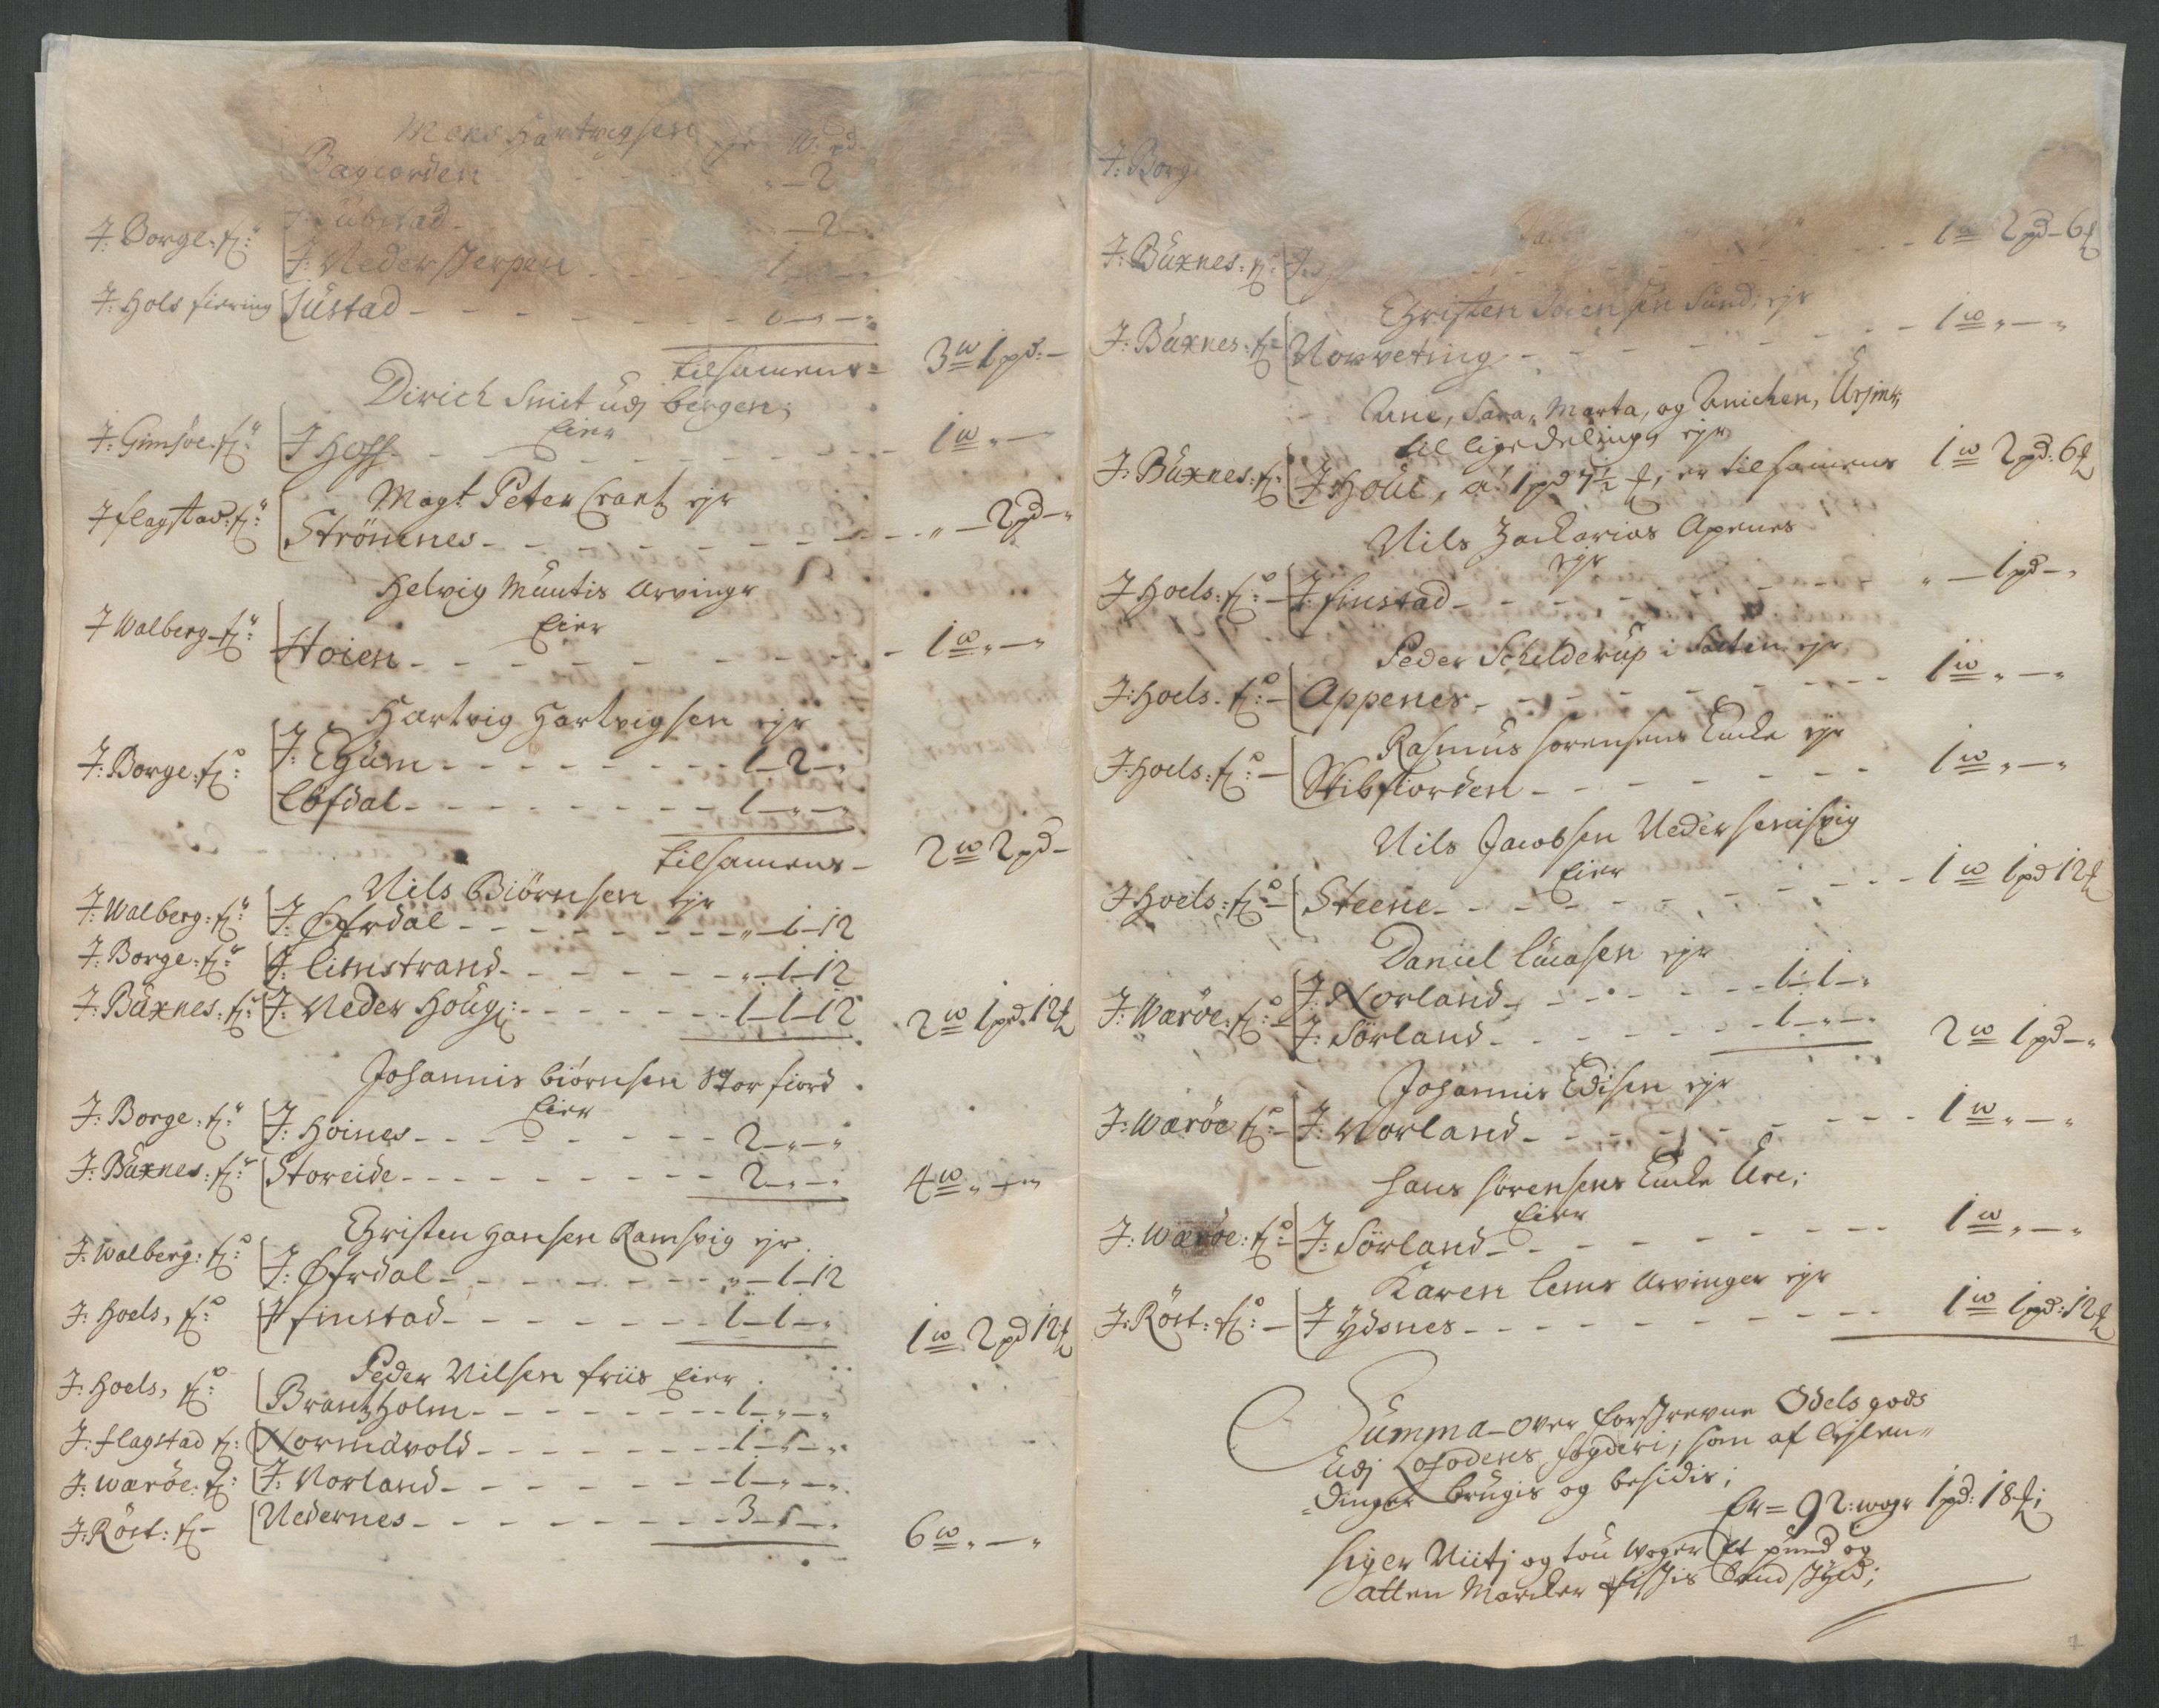 Mons Hartvigsen ejr W: pd:
Bagiorden - - - „ — 2
J: Borge: fl:
J: Ubstad - - - „ — 2 — „
J: Neder Jerpen - - - 1 — „ — „
J: Hols fiering Sustad - - - 1 — „ — „
tilsamens = 3 w 1 pd: —
Dirich Smit udj bergen;
Eier
J: Gimsöe: fl: J Hoff - - - 1 w „ — „
Magt. Peter Crantz ejr
J flagstad: fl: Strömnes - - - „ — 2 pd — „
Helvig Muntis Arvinger
Eier
J Walberg fl: Hoien - - - 1 w „ — „
Hartvig Hartvigsen ejr
J: Borge: fl: J: Egum - - - 1 — 2 — „
Löfdal - - - 1 — „ — „
tilsamens — 2 w 2 pd —
Nils Biörnsen ejr
J: Walberg: fl: J: Øfrdal - - - „ — 1 — 12
J: Borge: fl: J: Limstrand - - - „ — 1 — 12
J: Buxnes: fl: J: Neder Houg: - - - 1 — 1 — 12 2 w 1 pd: 12 ℔
Johannis biörnsen Storfiord
Eier
J: Borge: fl: J: Hoines - - - 2 — „ — „
J: Buxnes: fl: Storeide - - - 2 — „ — „ 4 w „ — „
Christen Hansen Ramsvig ejr
J: Walberg: fl: J: Øfrdal - - - „ — 1 — 12
J: Hoels, fl: J finstad - - - 1 — 1 — „ 1 w 2 pd 12 ℔
Peder Nilsen friis Eier
J: Hoels, fl: Brantzholm - - - 1 — „ — „
J: flagstad fl: Normavold - - - 1 — „ — „
J: Waröe: fl: J: Norland - - - 1 — „ — „
J: Röst: fl — Nedernes - - - 3 — „ — „ 6 w „ — „
J: Borge
J: Buxnes: fl: J: - - - 1 w 2 pd — 6 ℔
Christen Sund: ejr
J: Buxnes: fl: Norveting - - - 1 w „ — „
Anne, Sara, Marta, og Anichen,
til ligedeling, ejr
J: Buxnes: fl: J Houe, a: 1 pd 7½ ℔, er tilsamens 1 w 2 pd: 6 ℔
Nils Zackarias Apenes
ejr
J Hoels: fl: — J: finstad - - - „ — 1 pd — „
Peder Schilderup i Salten ejr
J: Hoels. fl: — Appenes - - - 1 w „ — „
Rasmus Sorensens Encke ejr
J: Hoels: fl: — Skibfiorden - - - 1 w „ — „
Nils Jacobsen Neder
Eier
J Hoels: fl: — Steene - - - 1 w 1 pd 12 ℔
Daniel Lucasen ejr
J: Waröe: fl: — J: Norland - - - 1 — 1 — „
J: Sörland - - - 1 — „ — „ 2 w 1 pd — „
Johannis Edisen ejr
J: Waröe fl: — J: Norland - - - 1 w „ — „
Hans Sörensens Encke Ure;
Eier
J: Waröe: fl: — J: Sörland - - - 1 w „ — „
Karen Lems Arvinger ejr
J: Röst: fl: — J Ydsnes - - - 1 w 1 pd: 12 ℔
Summa over forskrevne Odelsgods
Udj Lofodens fogderi, som af Opsten-
dinger brugis og besidis;
Er = 92: woger 1 pd: 18 ℔;
siger Niitj og tou Woger Et pund og
atten Marcker fisches Landskyld;
7